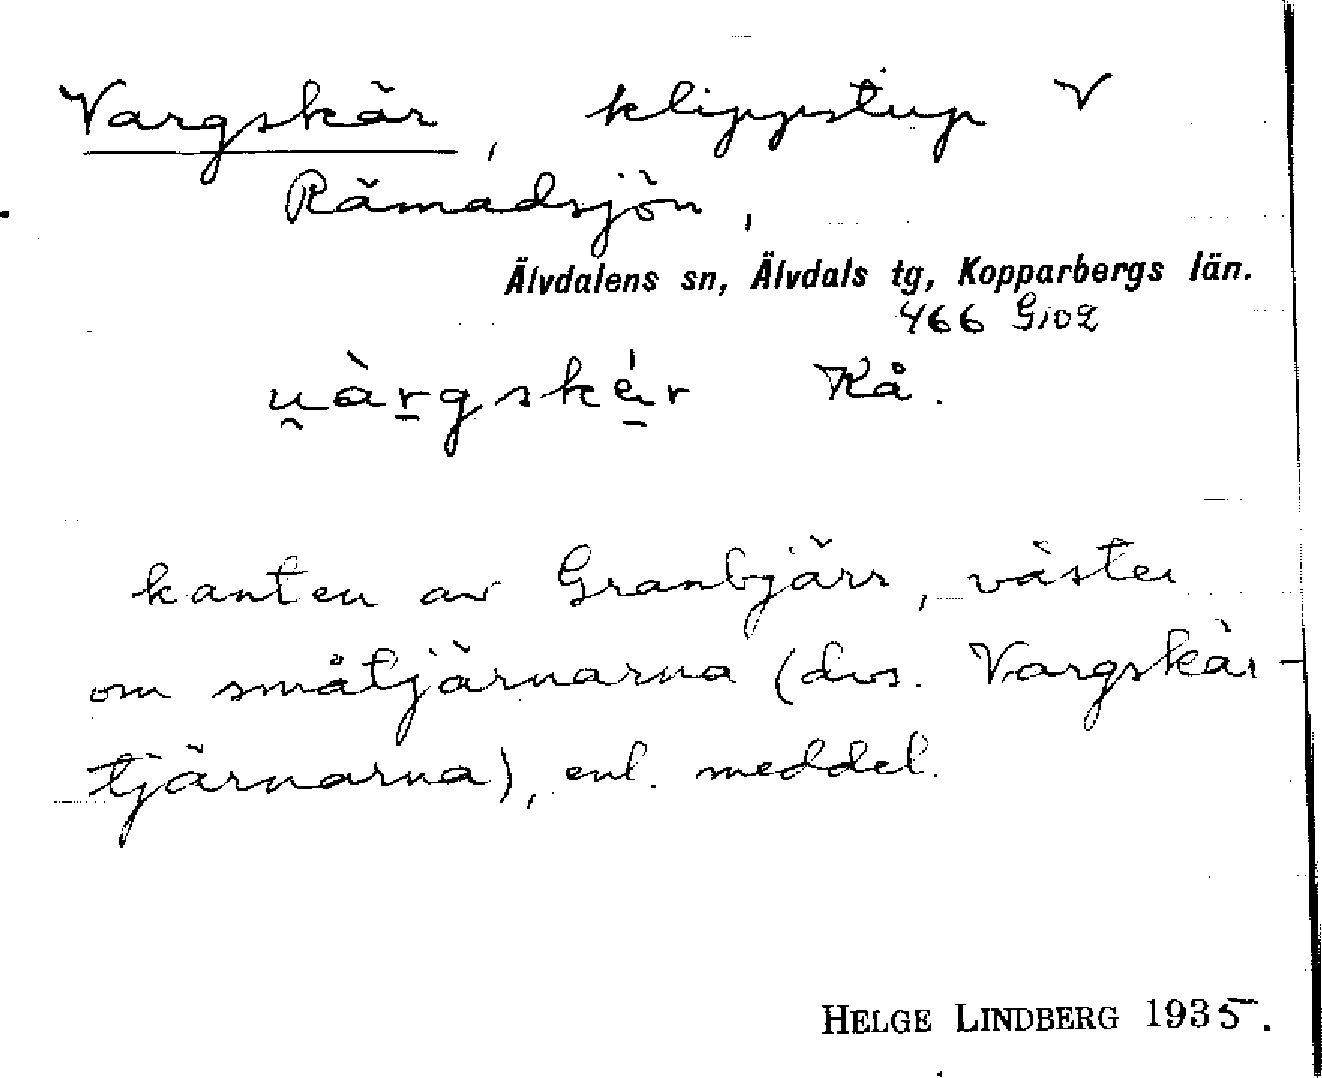 Vargskär, klippstup V
Rämådsjön,
Älvdalens sn, Älvdals tg, Kopparbergs län.
466 G102
u̯àr̠gské̠r Kå.
kanten av Granbjärs, väster
om småtjärnarna (dvs. Vargskär-
tjärnarna), enl. meddel.
HELGE LINDBERG 1935.